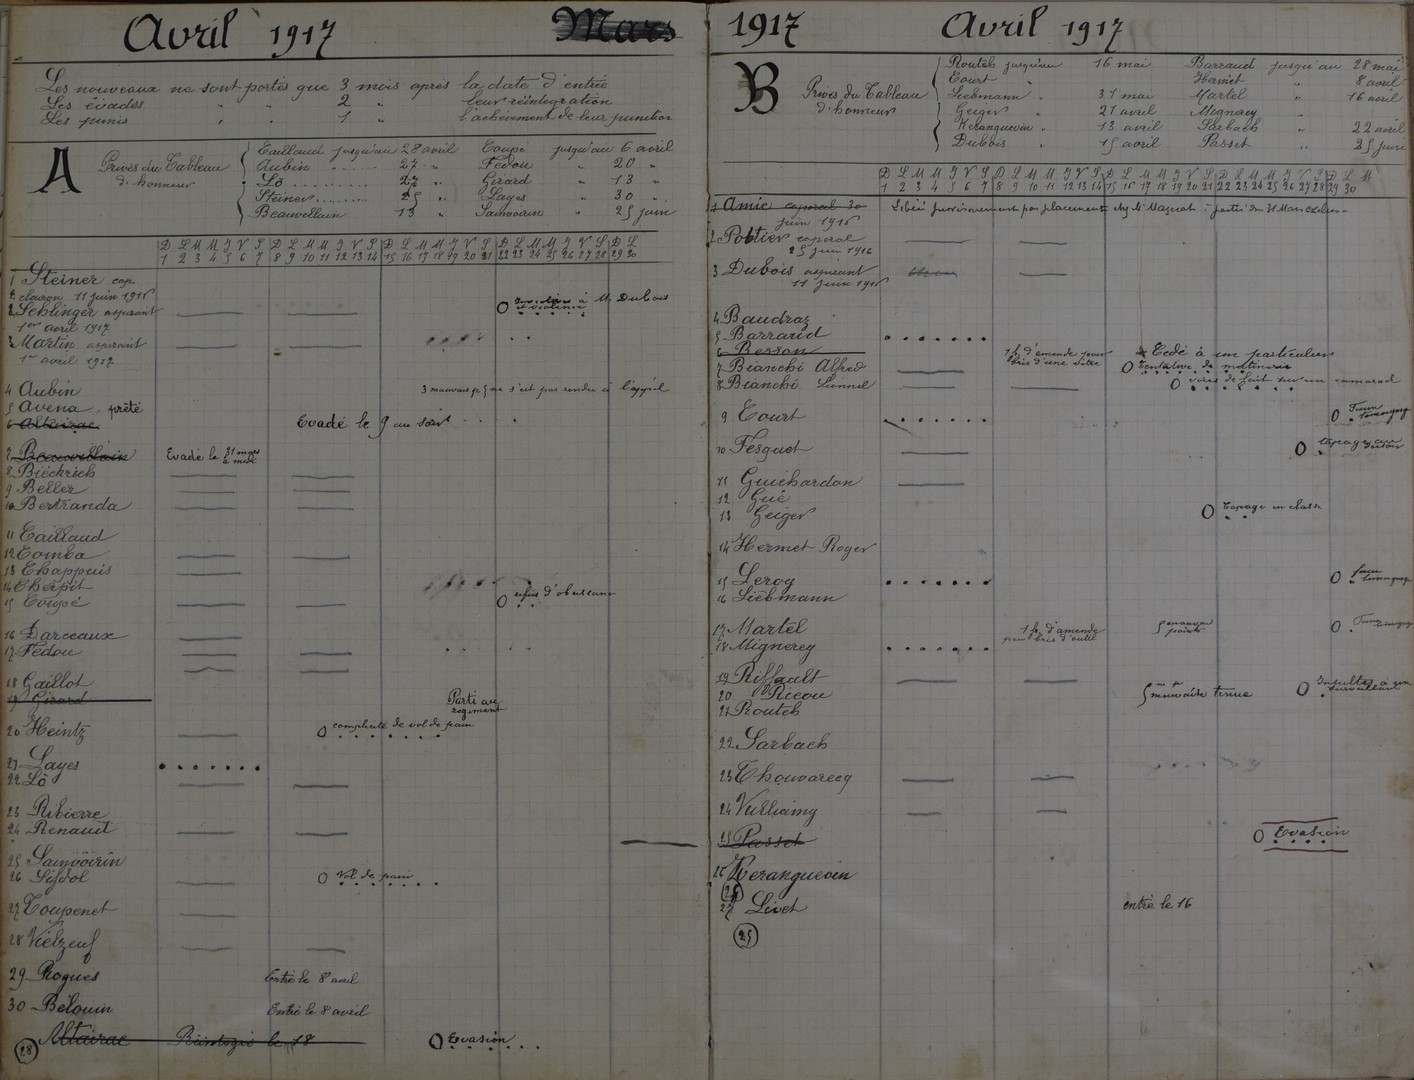 Avril 1917
Mars
Les nouveaux ne sont portés que 3 mois après la date d'entrée
Les évadés " " 2 " leur réintégration
Les punis " " 1 " l'achèvement de leur punition
A
Privés du Tableau
d'honneur
Caillaud jusqu'au 28 avril Coupé jusqu'au 6 avril
Aubin ...... 27 " Fédou " 20 "
Lô .......... 27 " Girard " 13 "
Steiner ........ 25 " Layes " 30 "
Beauvillain 13 " Samvoirin " 25 juin
D L M M J V S D L M M J V S D L M M J V S D L M M J V S D L
1 2 3 4 5 6 7 8 9 10 11 12 13 14 15 16 17 18 19 20 21 22 23 24 25 26 27 28 29 30
1 Steiner cap.
clairon 11 juin 1915
2 Sehlinger aspirant
1er avril 1917
à M. Dubois
3 Martin aspirant
1er avril 1917
4 Aubin
3 mauvais p s'est pas rendu à l'appel
5 Avena prêté
6 Altairac
Evadé le 9 au soir
7 Beauvillain
Evadé le 31 mars à midi
8 Bieckrich
9 Beller
10 Bertranda
11 Caillaud
12 Comba
13 Chappuis
14 Cherpit
15 Coupé
O refus d'obéissance
16 Darceaux
17 Fédou
18 Gaillot
19 Girard
Parti au
régiment
20 Heintz
O complicité de vol de pain
21 Layes
22 Lô
23 Ribierre
24 Renaud
25 Samvoirin
26 Sifdol
O Vol de pain
27 Toupenet
28 Vielzeuf
29 Rogues
Entré le 8 avril
30 Bélouin
Entré le 8 avril
Altairac Réintégré le 18
O Evasion
28
1917
Avril 1917
B
Privés du Tableau
d'honneur
Routeh jusqu'au 16 mai Barraud jusqu'au 28 mai
Court " Harriet " 8 avril
Liebmann " 31 mai Martel 16 avril
Geiger " 21 avril Mignerey
Keranguevin " 13 avril Sarbach " 22 avril
Dubois " 15 avril Passet " 25 juin
D L M M J V S D L M M J V S D L M M J V S D L M M J V S D L M
1 2 3 4 5 6 7 8 9 10 11 12 13 14 15 16 17 18 19 20 21 22 23 24 25 26 27 28 29 30
1 Amic caporal 30
juin 1916
Libéré provisoirement par placement chez Mr à partir du 31 Mars
2 Poltier caporal
25 juin 1916
3 Dubois aspirant
11 juin 1916
4 Baudraz
5 Barraud
6 Besson
1f. d'amende pour
bris d'une vitre
Cédé à un particulier
7 Bianchi Alfred
O tentative de mutinerie
8 Bianchi Lionnel
O voies de fait sur un camarad
9 Court
O
10 Fesquet
O tapage au
11 Guichardon
12 Gué
13 Geiger
O Tapage en classe
14 Hermet Roger
15 Leroy
O
16 Liebmann
17 Martel
1 fr. d'amende
pour bris d'outil
5 mauvais
points
O
18 Mignerey
19 Riffault
20 Ricou
5 mauvaise tenue
O Insultes à un
surveillant
21 Routeh
22 Sarbach
23 Thouvarecq
24 Vulliamy
25 Passet
O Evasion
26 Keranguevin
26
27 Livet
entré le 16
25